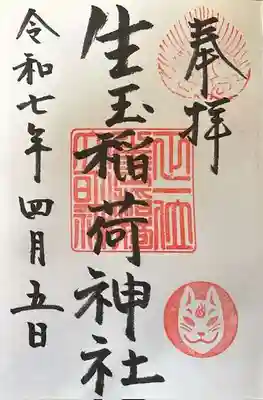 奉拝
生玉稲荷神社
令和七年四月五日